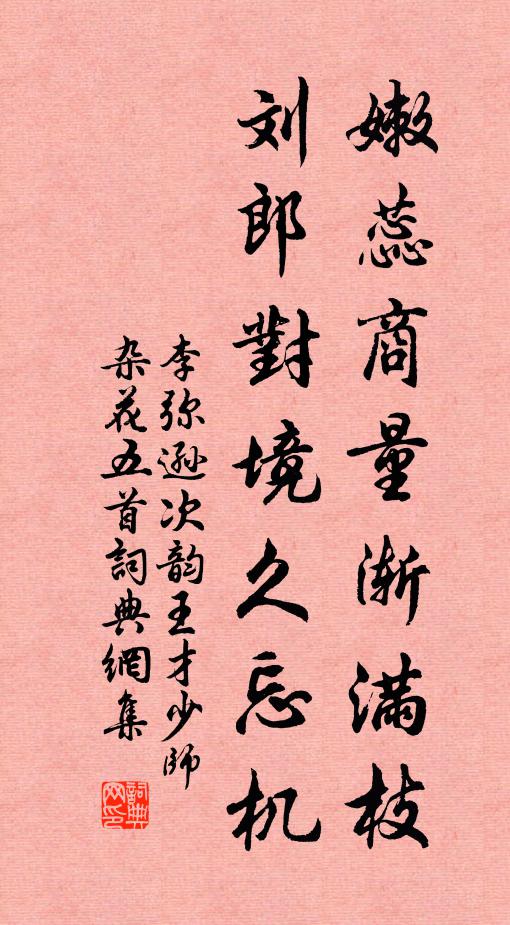 嫩蕊商量渐满枝
刘郎對境久忘机
李弥遜次韵王才少師
杂花五首詞典網集
詞典
网印